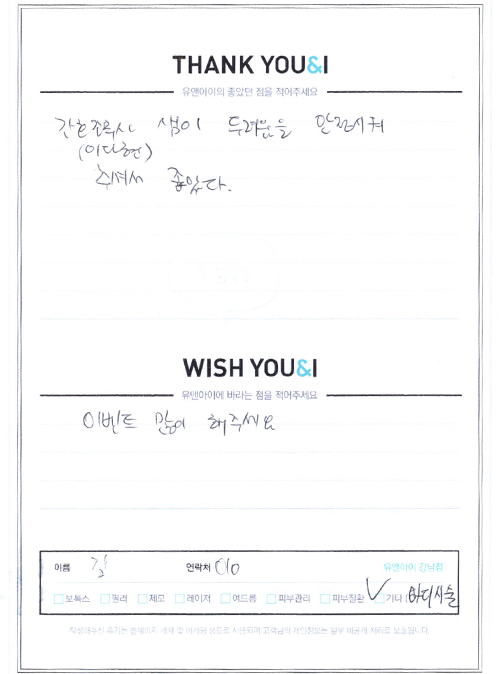 THANK YOU&I
유앤아이의 좋았던 점을 적어주세요
간호조무사 샘이 두려움을 안정시켜
(이다현)
주셔서 좋았다.
WISH YOU&I
유앤아이에 바라는 점을 적어주세요
이벤트 많이 해주세요
이름 김 연락처 010 유앤아이 강남점
보톡스 필러 제모 레이저 여드름 피부관리 피부질환 ✓기타 (바디시술
작성해주신 후기는 홈페이지 게재 및 마케팅 용도로 사용되며 고객님의 개인정보는 일부 비공개 처리로 보호됩니다.